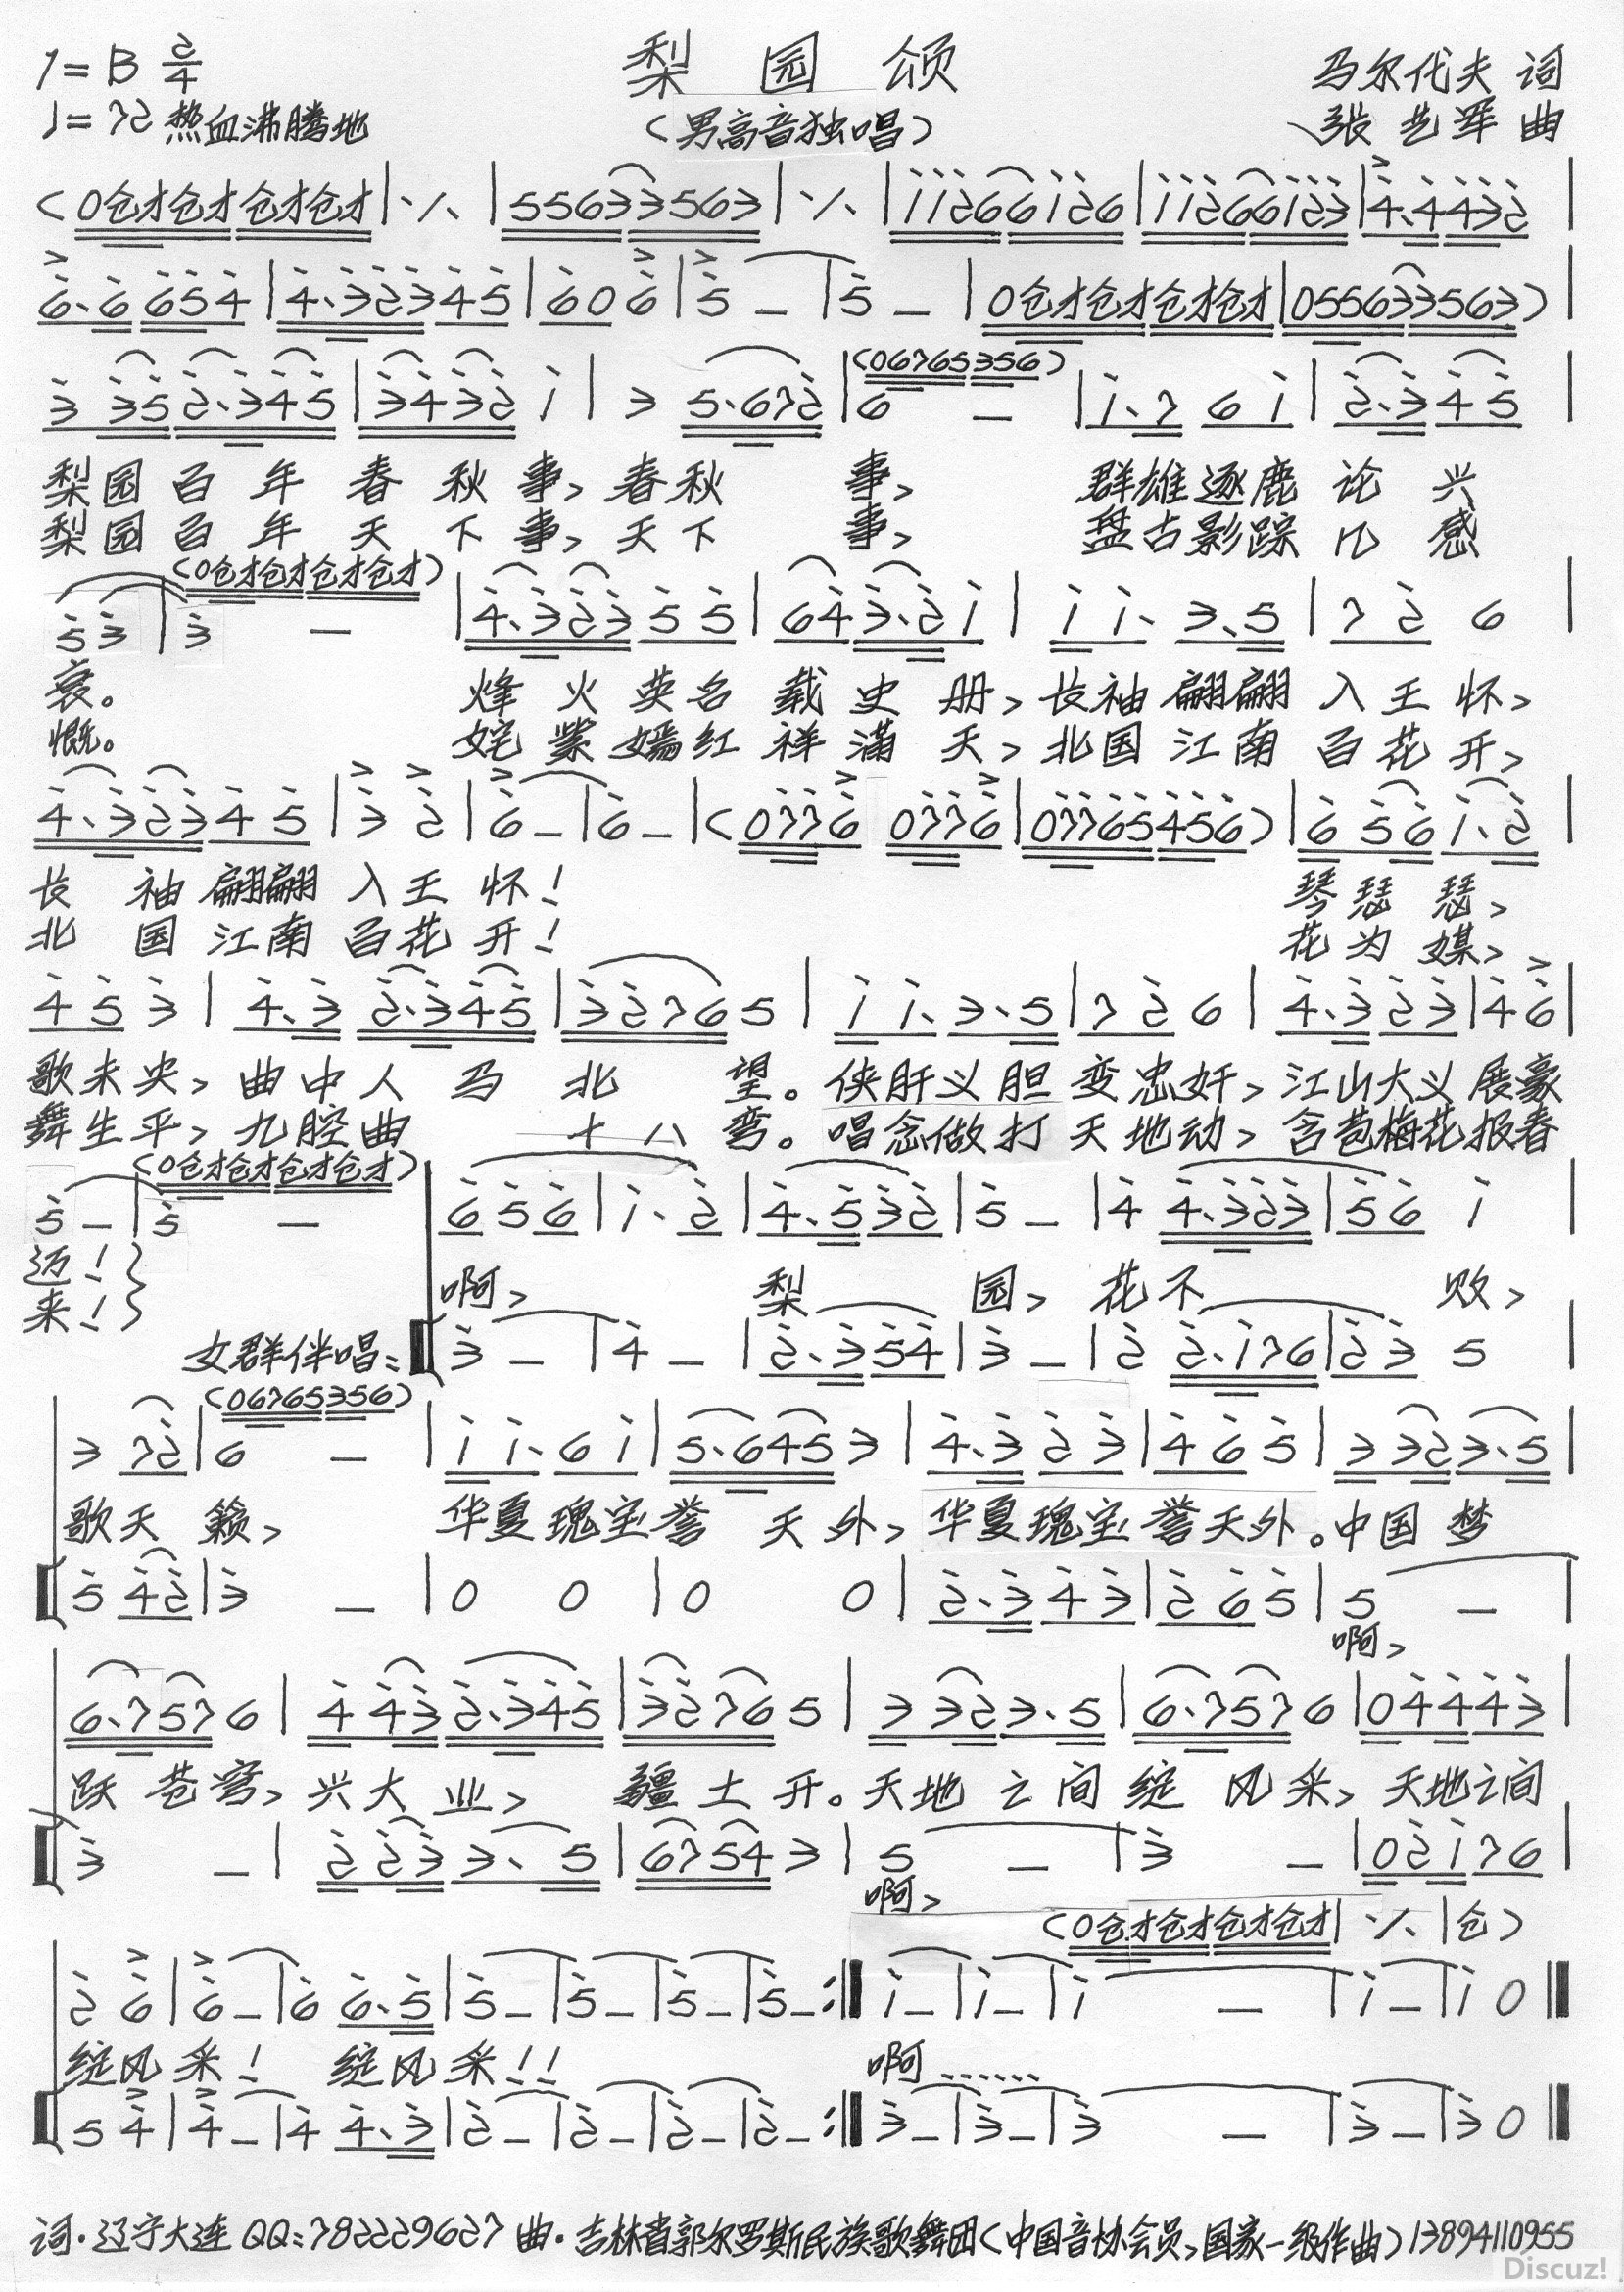 1=B 2/4 梨园颂 马尔代夫 词
♩=72 热血沸腾地 (男高音独唱) 张艺军 曲
(0仓才仓才 仓才仓才|٠/.|55633563|٠/.|11266126|11266123|4.4432|
6.6 654|4.32345|606|5 –|5 –|0仓才仓才仓才仓才|055633563)|
(06765356)
3 352.345|34321|3 5.672|6 –|1.7 6 1|2.345|
梨园百年春秋事,春秋 事, 群雄逐鹿论兴
梨园百年天下事,天下 事, 盘古影踪几感
(0仓才仓才仓才仓才)
53|3 –|4.32355|643.21|1 1. 3.5|7 2 6|
衰。 烽火英名载史册,长袖翩翩入王怀,
慨。 姹紫嫣红祥满天,北国江南百花开,
4.32345|3 2|6–|6–|(0776 0776|07765456)|6 561.2|
长袖翩翩入王怀! 琴瑟瑟,
北国江南百花开! 花为媒,
4 5 3|4.3 2.345|32765|1 1.3.5|7 2 6|4.323|46|
歌未央,曲中人马北 望。侠肝义胆变忠奸,江山大义展豪
舞生平,九腔曲 十八弯。唱念做打天地动,含苞梅花报春
(0仓才仓才仓才仓才)
5–|5 –|656|1.2|4.532|5–|4 4.323|56 1|
迈!}
来!}
啊, 梨 园,花不 败,
女群伴唱: 3–|4–|2.354|3–|2 2.176|23 5|
(06765356)
3 72|6 –|1 1.61|5.6453|4.323|465|3 323.5|
歌天籁, 华夏瑰宝誉天外,华夏瑰宝誉天外。中国梦
5 42|3 –|0 0|0 0|2.343|265|5 –|
啊,
6.7576|4 432.345|32765|3 323.5|6.7576|04443|
跃苍穹,兴大业, 疆土开。天地之间绽风采,天地之间
3 –|2 233. 5|67543|5 –|3 –|02176|
啊,
(0仓才仓才仓才仓才|٠/.|仓)
2 6|6–|6 6.5|5–|5–|5–|5–:‖1–|1–|1 –|1–|1 0‖
绽风采! 绽风采!! 啊……
5 4|4–|4 4.3|2–|2–|2–|2–:‖3–|3–|3 –|3–|3 0‖
词·辽宁大连QQ:782229627 曲·吉林省郭尔罗斯民族歌舞团(中国音协会员,国家一级作曲)13894110955
Discuz!